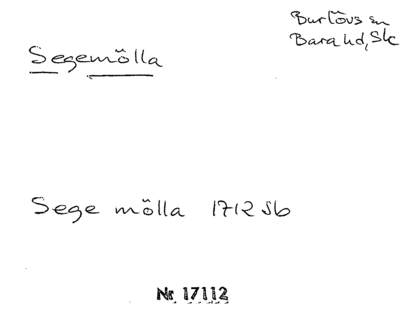 Burlövs sn
Bara hd, Sk
Segemölla
Sege mölla 1712 Jb
Nr 17112